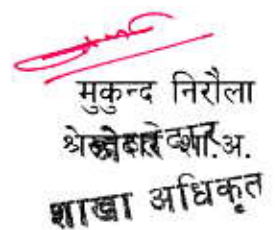 मुकुन्द निरौला
शा.अ.
शाखा अधिकृत